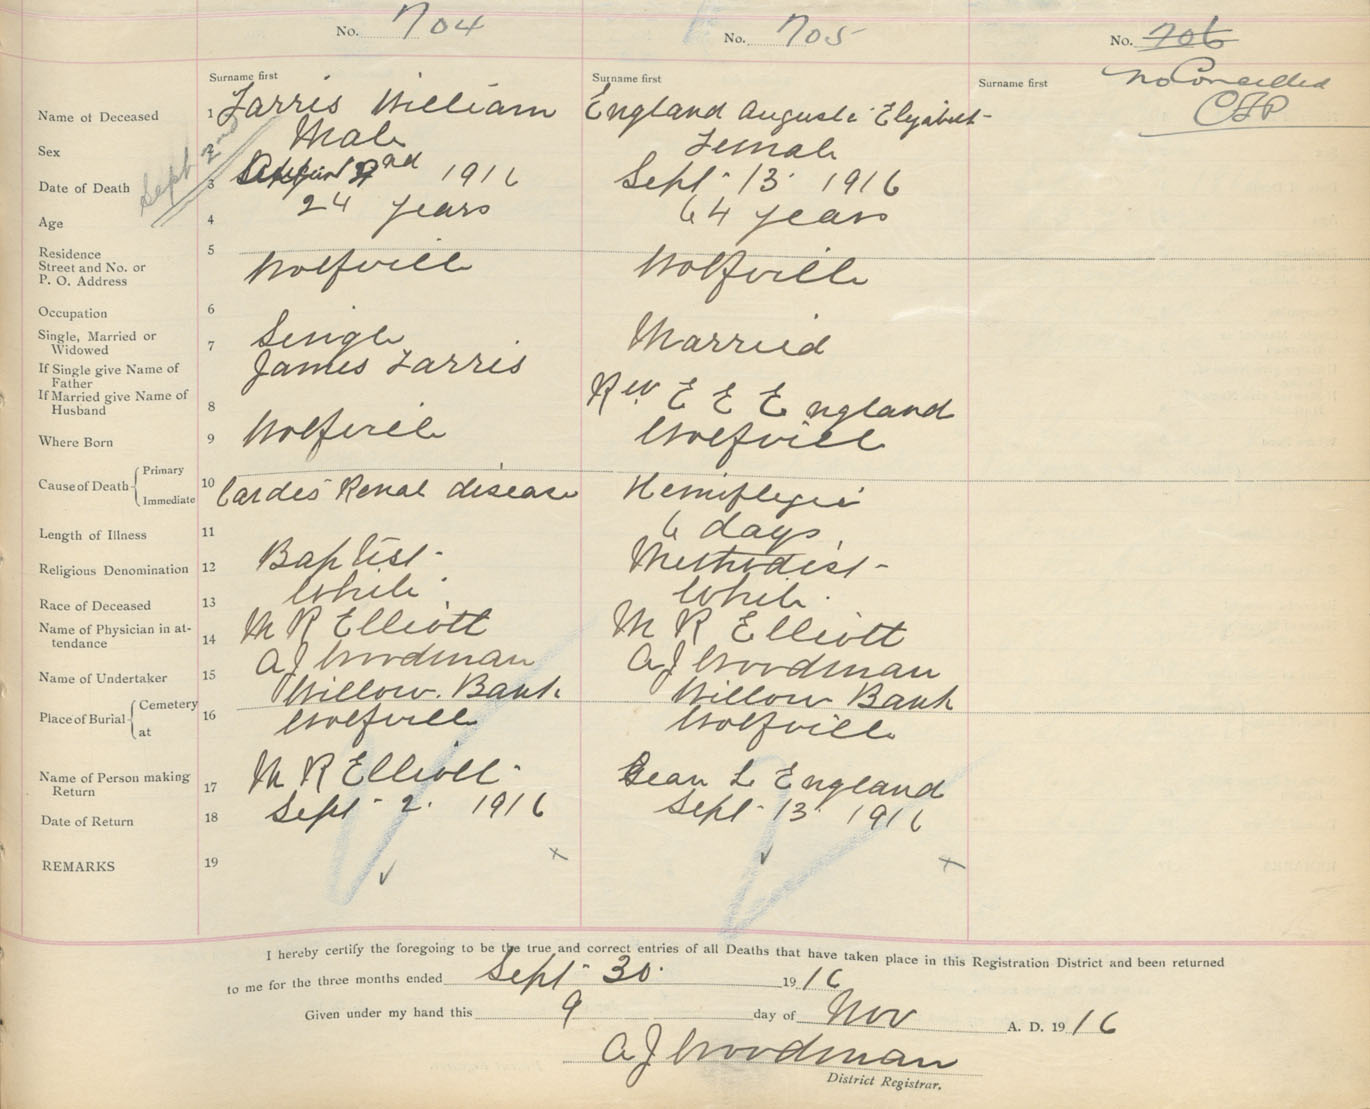 No. 704
No. 705
No. 706
no Cancelled
Surname first
Surname first
Surname first
Name of Deceased 1 Farris William England Augusta Elizabeth
Sex 2 Male Female
Sept 2nd
Date of Death 3 2nd 1916 Sept. 13. 1916
Age 4 24 years 64 years
Residence
Street and No. or
P. O. Address 5 Wolfville Wolfville
Occupation 6
Single, Married or
Widowed 7 Single Married
If Single give Name of
Father James Farris
If Married give Name of
Husband 8 Rev E E England
Where Born 9 Wolfville Wolfville
Cause of Death Primary
Immediate 10 Cardio Renal disease Hemiplegia
Length of Illness 11 6 days
Religious Denomination 12 Baptist Methodist
Race of Deceased 13 White White
Name of Physician in at-
tendance 14 M R Elliott M R Elliott
Name of Undertaker 15 A J Woodman A J Woodman
Place of Burial Cemetery Willow Bank Willow Bank
at 16 Wolfville Wolfville
Name of Person making
Return 17 M R Elliott L England
Date of Return 18 Sept 2. 1916 Sept 13 1916
REMARKS 19
I hereby certify the foregoing to be the true and correct entries of all Deaths that have taken place in this Registration District and been returned
to me for the three months ended Sept 30. 1916
Given under my hand this 9 day of Nov A. D. 1916
A J Woodman
District Registrar.